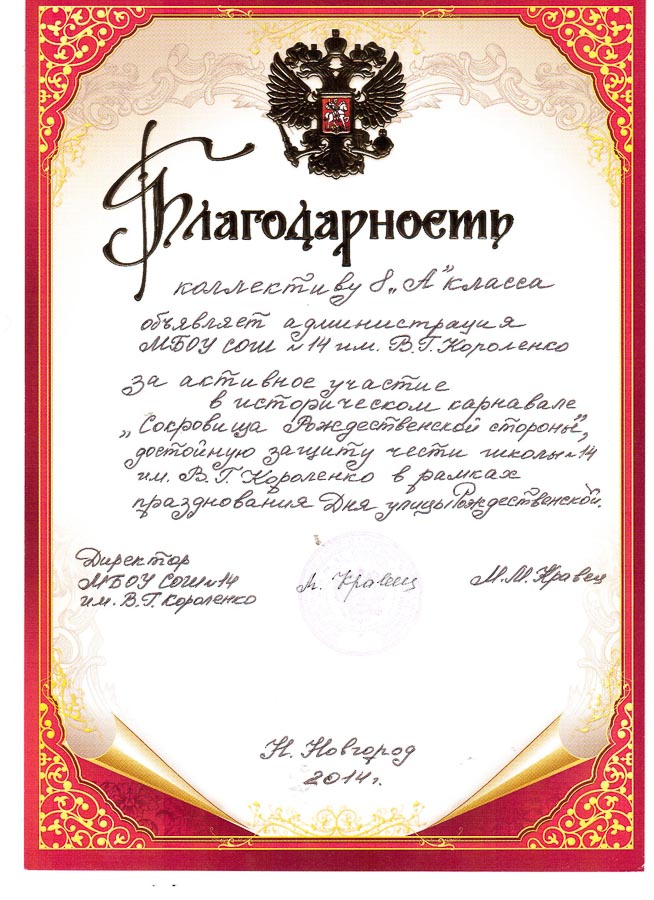 Благодарность
коллективу 8 „А" класса
объявляет администрация
МБОУ СОШ № 14 им. В.Г. Короленко
за активное участие
в историческом карнавале
„Сокровища Рождественской стороны",
достойную защиту чести школы № 14
им. В.Г. Короленко в рамках
празднования Дня улицы Рождественской.
Директор
МБОУ СОШ № 14
им. В.Г. Короленко
М. Кравец
М.М. Кравец
Н. Новгород
2014 г.